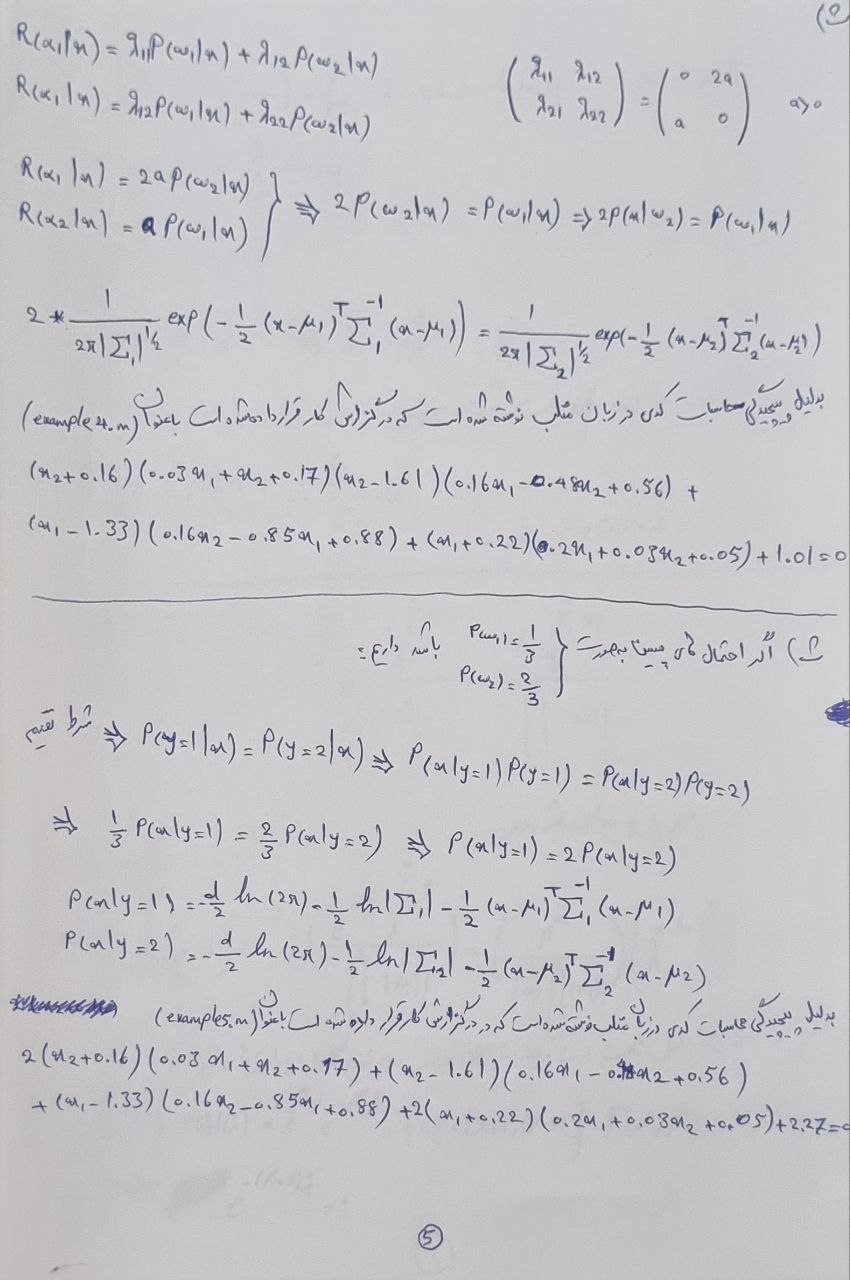 R(α₁|x) = λ₁₁P(ω₁|x) + λ₁₂P(ω₂|x)
R(α₁|x) = λ₁₂P(ω₁|x) + λ₂₂P(ω₂|x)
(λ₁₁ λ₁₂
λ₂₁ λ₂₂) = (0 2a
a 0) a>0
R(α₁|x) = 2aP(ω₂|x)
R(α₂|x) = aP(ω₁|x) } ⇒ 2P(ω₂|x) = P(ω₁|x) ⇒ 2P(x|ω₂) = P(ω₁|x)
2 * 1/(2π|Σ₁|^½) exp(-½ (x-μ₁)ᵀ Σ₁⁻¹ (x-μ₁)) = 1/(2π|Σ₂|^½) exp(-½ (x-μ₂)ᵀ Σ₂⁻¹ (x-μ₂))
بدلیل پیچیدگی محاسبات کدی در زبان متلب نوشته شده است که در گزارش کار قرار داده شده است باعنوان (example4.m)
(x₂+0.16)(0.03x₁+x₂+0.17)(x₂-1.61)(0.16x₁-0.48x₂+0.56) +
(x₁-1.33)(0.16x₂-0.85x₁+0.88) + (x₁+0.22)(0.2x₁+0.03x₂+0.05)+1.01=0
ث) اگر احتمال های پیشین بصورت { P(ω₁)=1/3
P(ω₂)=2/3 باشد داریم:
شرط تقسیم ⇒ P(y=1|x) = P(y=2|x) ⇒ P(x|y=1)P(y=1) = P(x|y=2)P(y=2)
⇒ 1/3 P(x|y=1) = 2/3 P(x|y=2) ⇒ P(x|y=1) = 2P(x|y=2)
P(x|y=1) = -d/2 ln(2π) - ½ ln|Σ₁| - ½ (x-μ₁)ᵀ Σ₁⁻¹ (x-μ₁)
P(x|y=2) = -d/2 ln(2π) - ½ ln|Σ₂| - ½ (x-μ₂)ᵀ Σ₂⁻¹ (x-μ₂)
بدلیل پیچیدگی محاسبات کدی در زبان متلب نوشته شده است که در گزارش کار قرار داده شده است باعنوان (example5.m)
2(x₂+0.16)(0.03x₁+x₂+0.17) + (x₂-1.61)(0.16x₁-0.4x₂+0.56)
+ (x₁-1.33)(0.16x₂-0.85x₁+0.88) + 2(x₁+0.22)(0.2x₁+0.03x₂+0.05)+2.27=0
5